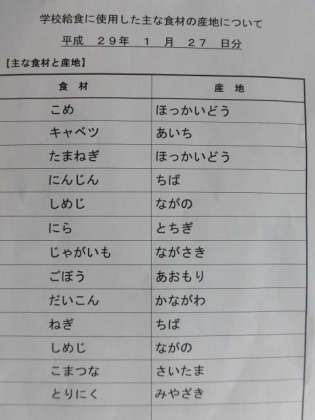 学校給食に使用した主な食材の産地について
平成 29年 1 月 27 日分
【主な食材と産地】
食 材 産 地
こめ ほっかいどう
キャベツ あいち
たまねぎ ほっかいどう
にんじん ちば
しめじ ながの
にら とちぎ
じゃがいも ながさき
ごぼう あおもり
だいこん かながわ
ねぎ ちば
しめじ ながの
こまつな さいたま
とりにく みやざき